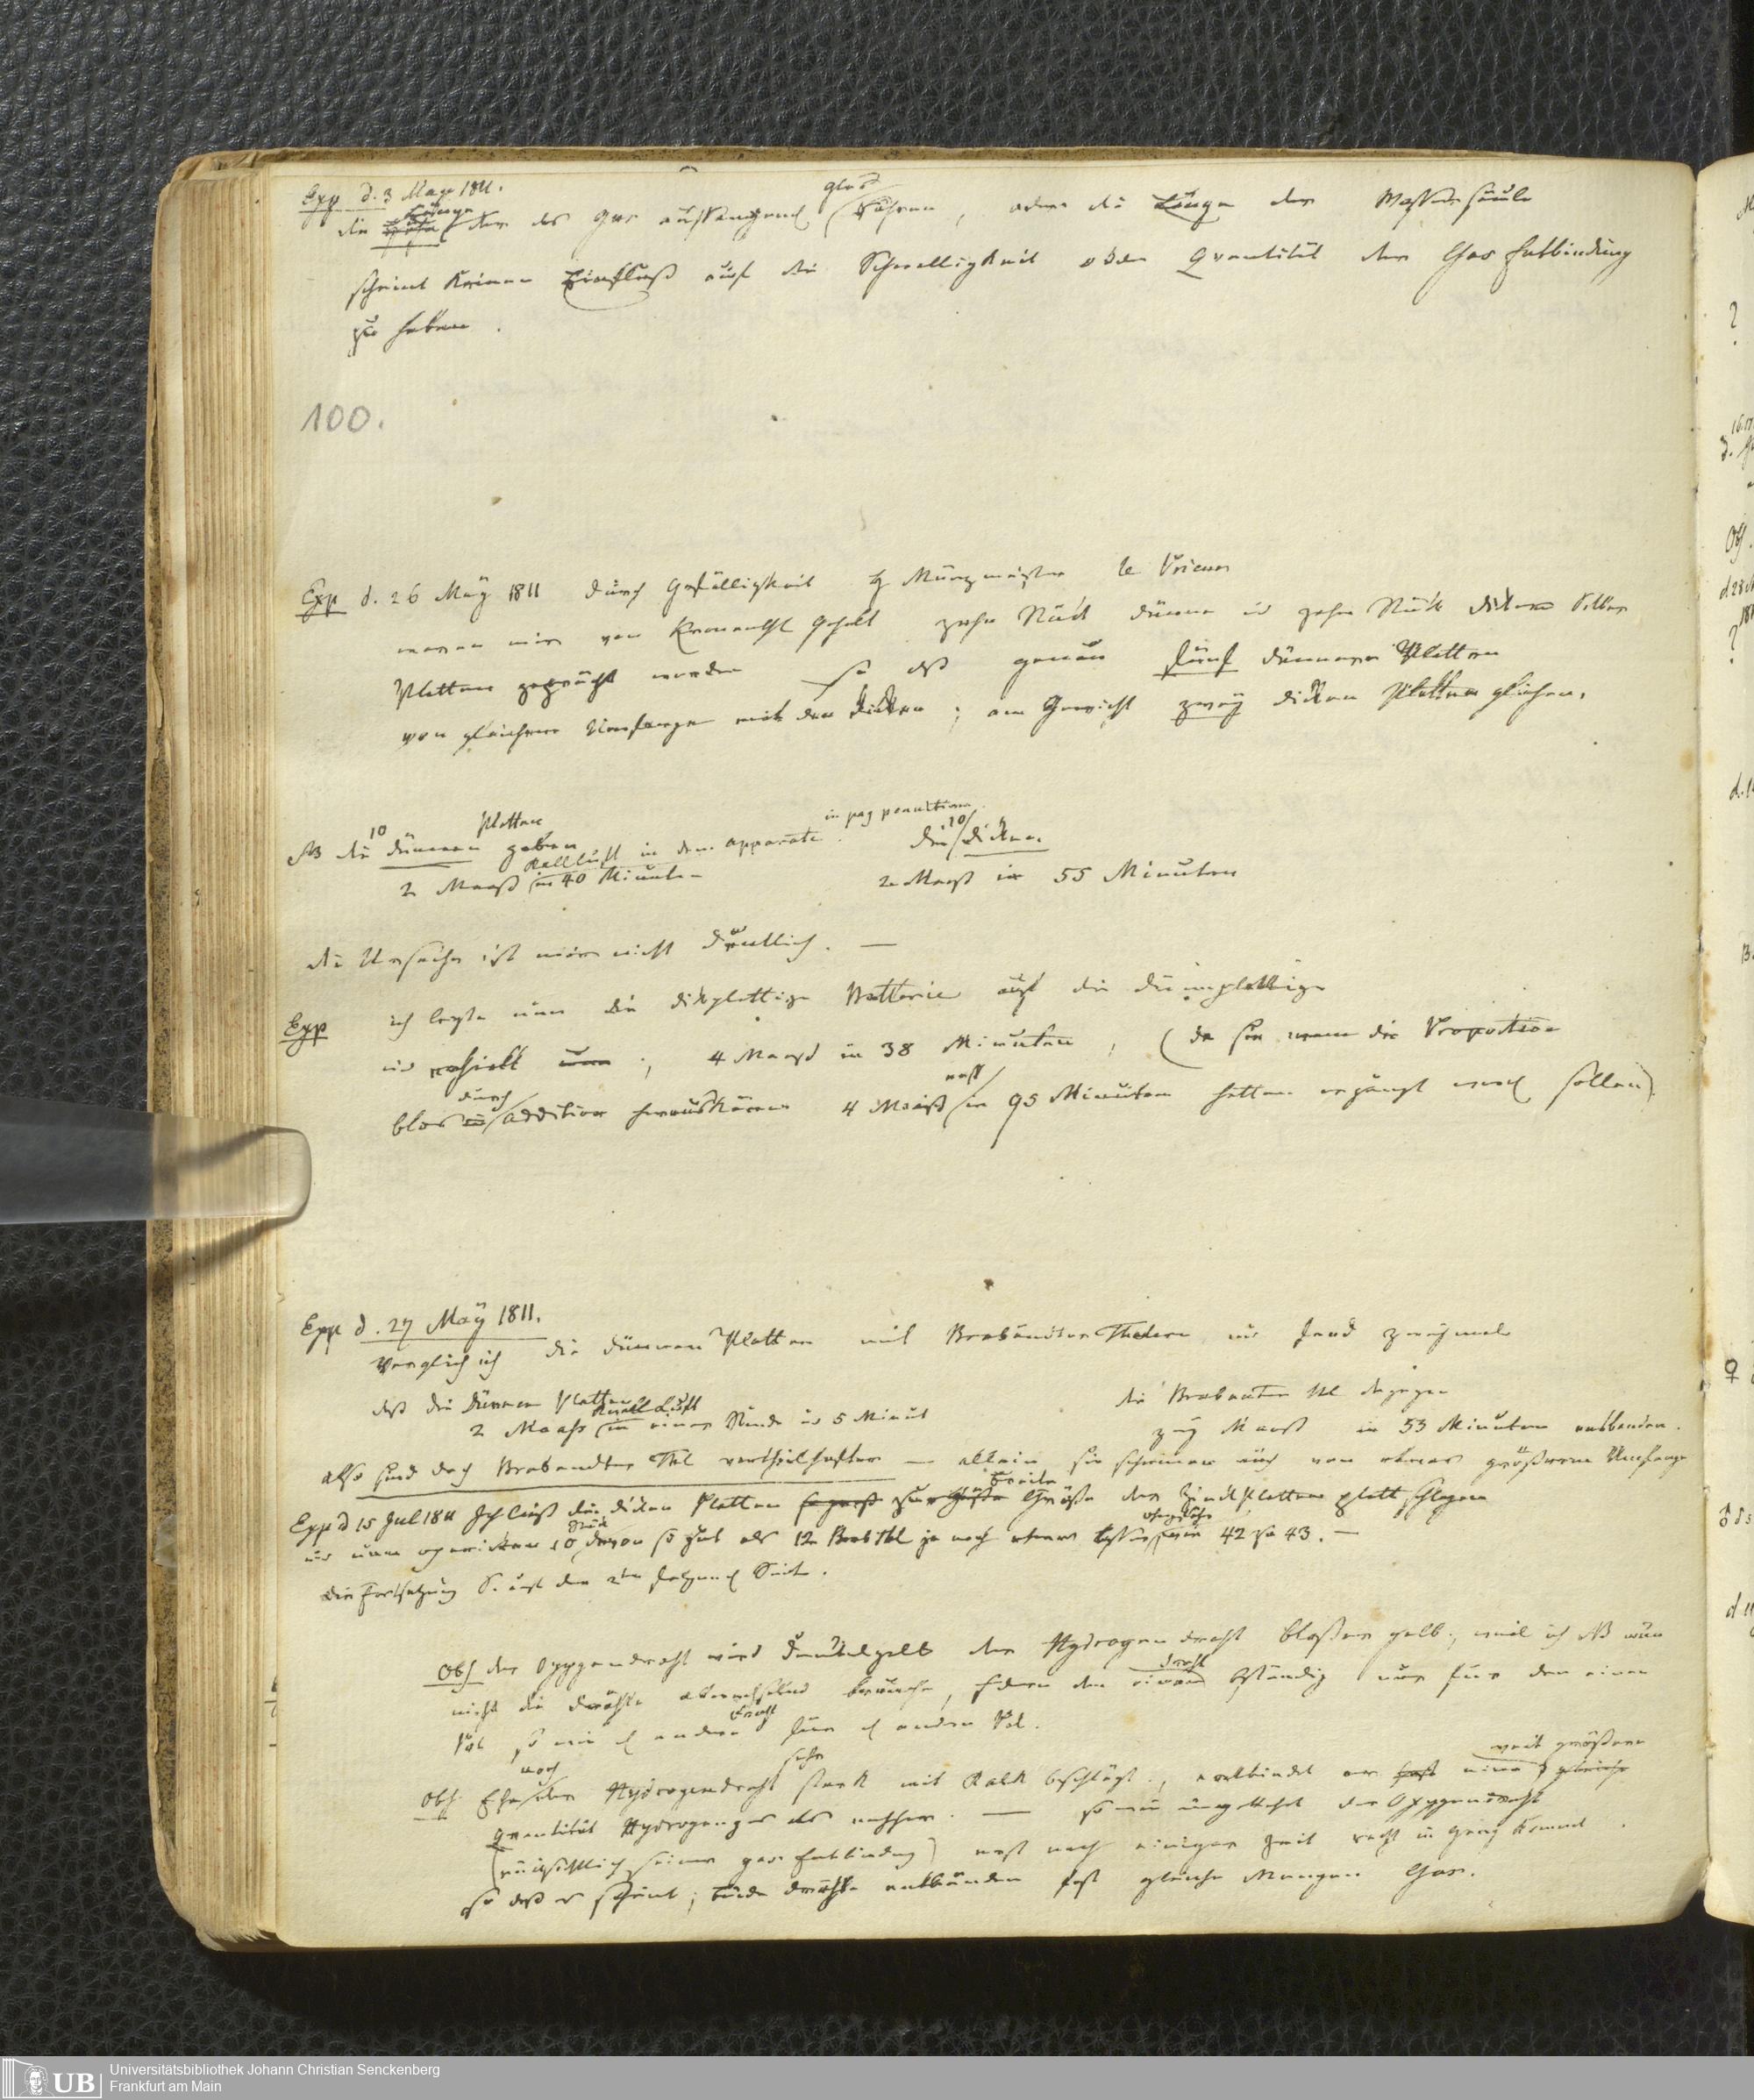 Exp d. 3 May 1811.
die Länge der das Gas auffangend Glas Röhren, oder die Länge der Wassersäule
scheint keinen Einfluß auf die Schnelligkeit oder Quantität der Gas Entbindung
zu haben.
100.
Exp d. 26 Maÿ 1811 durch Gefälligkeit H Münzmeister le
waren mir von Kronenthl Gehalt zehn Stück dünne und zehn Stück dickere Silber
Platten geprägt worden so daß genau fünf dünnere Platten
von gleichem Umfange mit den dicken; am Gewicht zweÿ dicken Platten glichen.
NB die 10 dünnen Platten geben
in pag penultima
2 Maaß Knallluft in dem apparate in 40 Minuten
die 10 dicken.
2 Maaß in 55 Minuten
die Ursache ist mir nicht deutlich. —
Exp ich legte nun die dickplattige Batterie auf die dünnplattige
und erhielt; 4 Maass in 38 Minuten, (da sie wenn die Proportion
blos durch addition herauskäme 4 Maaß erst in 95 Minuten hätten erzeugt werd sollen)
Exp d. 27 Maÿ 1811.
Verglich ich die dünnen Platten mit Brabandter Thalern und fand zweÿmal
daß die dünnen Platten
2 Maaß Knall Luft in einer Stunde und 5 Minut
die Brabanter Thl dagegen
zweÿ Maaß in 53 Minuten entbanden.
also sind doch Brabandter Thl vortheilhafter — allein sie scheinen auch von etwas größerem Umfange
Exp d 15 Jul 1811 Ich ließ die dicken Platten zur Breite Größe der Zinckplatten platt schlagen
und nun operirten 10 Stück davon so gut als 12 Brab Thl ja noch etwas besser ohngefähr wie 42 zu 43. —
die Fortsetzung S. auf der 2ten folgend Seite.
Obs der Oxygendraht wird dunkelgelb der Hydrogendraht blaßer gelb; weil ich NB nun
nicht die Drähte abwechselnd brauche, sondern den einen draht beständig nur für den einen
Pol so wie d andern Draht für d andern Pol.
Obs. Ehe noch der Hydrogendraht sehr stark mit Kalk beschlägt, entbindet er eine weit größere
Quantität Hydrogengas als nachher. — so wie umgekehrt der Oxygendraht
(rücksichtlich seiner gas Entbindung) erst nach einiger Zeit recht in Gang kommt.
so daß es scheint; beide Drähte entbänden fast gleiche Mengen Gas.
UB Universitätsbibliothek Johann Christian Senckenberg
Frankfurt am Main